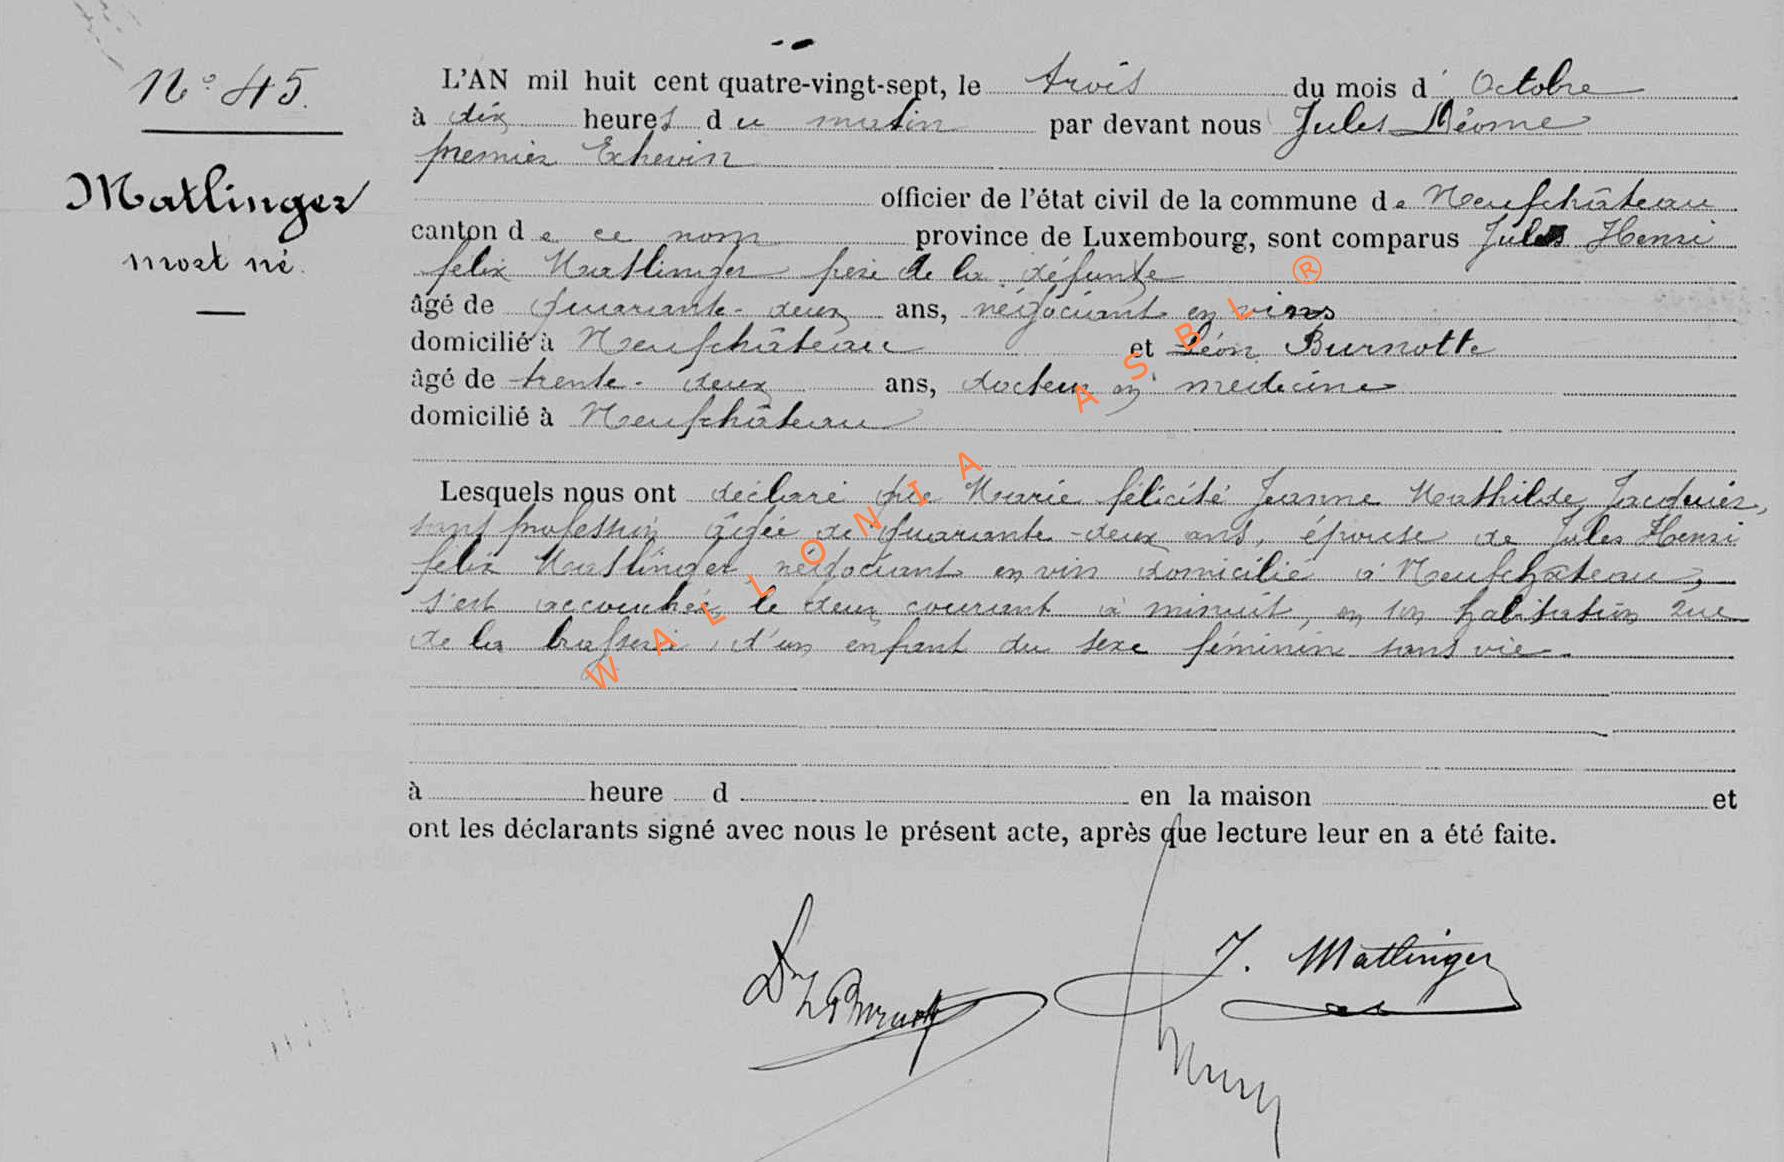 N° 45.
Matlinger
mort né.
L'AN mil huit cent quatre-vingt-sept, le trois du mois d' Octobre
à dix heures du matin par devant nous Jules Léome
premier Echevin
officier de l'état civil de la commune de Neufchâteau
canton de ce nom province de Luxembourg, sont comparus Jules Henri
félix Matlinger père de la défunte
âgé de quarante-deux ans, négociant en vins
domicilié à Neufchâteau et Léon Burnotte
âgé de trente-deux ans, docteur en médecine
domicilié à Neufchâteau
Lesquels nous ont déclaré que Marie félicité Jeanne Mathilde Jacquier,
sans profession âgée de quarante-deux ans, épouse de Jules Henri
félix Matlinger négociant en vin domicilié à Neufchâteau,
s'est accouchée le deux courant à minuit, en son habitation rue
de la brasserie, d'un enfant du sexe féminin sans vie.
à heure d en la maison et
ont les déclarants signé avec nous le présent acte, après que lecture leur en a été faite.
J. Matlinger
Dr L Burnotte
WALLONIA ASBL ®